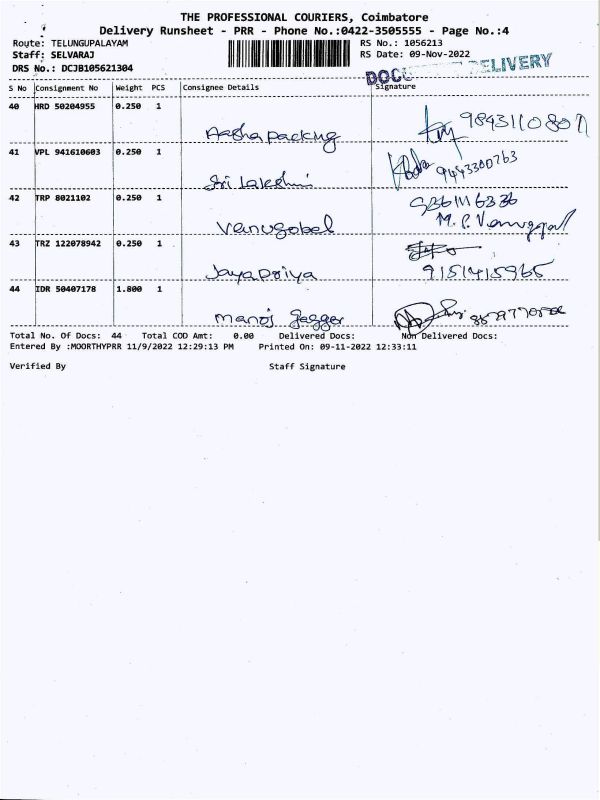 THE PROFESSIONAL COURIERS, Coimbatore
Delivery Runsheet - PRR - Phone No.:0422-3505555 - Page No.:4
Route: TELUNGUPALAYAM RS No.: 1056213
Staff: SELVARAJ RS Date: 09-Nov-2022
DRS No.: DCJB105621304 DELIVERY
S No Consignment No Weight PCS Consignee Details Signature
40 HRD 50204955 0.250 1
Aasha packing 9843110807
41 VPL 941610603 0.250 1
Sri Lakshmi 9443300763
42 TRP 8021102 0.250 1
Venugobal M.P. Venugopal
43 TRZ 122078942 0.250 1
Jayapriya 9151415965
44 IDR 50407178 1.800 1
Manoj Jagger
Total No. Of Docs: 44 Total COD Amt: 0.00 Delivered Docs: Non Delivered Docs:
Entered By :MOORTHYPRR 11/9/2022 12:29:13 PM Printed On: 09-11-2022 12:33:11
Verified By Staff Signature